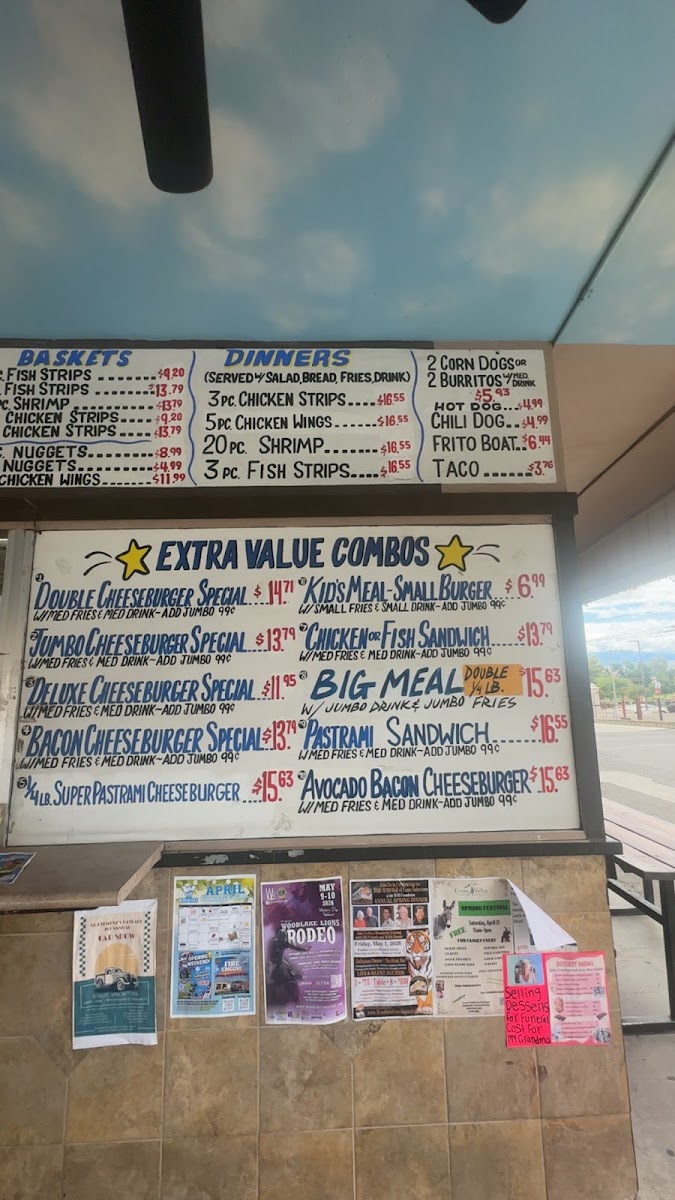 BASKETS
FISH STRIPS ........ $9.20
FISH STRIPS ....... $13.79
SHRIMP ............ $13.79
CHICKEN STRIPS .... $9.20
CHICKEN STRIPS .... $13.79
NUGGETS ........ $8.99
NUGGETS ........ $4.99
CHICKEN WINGS ..... $11.99
DINNERS
(SERVED W/ SALAD, BREAD, FRIES, DRINK)
3 PC. CHICKEN STRIPS ..... $16.55
5 PC. CHICKEN WINGS ....... $16.55
20 PC. SHRIMP ....... $16.55
3 PC. FISH STRIPS ..... $16.55
2 CORN DOGS OR
2 BURRITOS W/MED. DRINK
$5.93
HOT DOG... $4.99
CHILI DOG... $4.99
FRITO BOAT... $6.44
TACO ...... $3.76
EXTRA VALUE COMBOS
DOUBLE CHEESEBURGER SPECIAL $14.71
W/MED FRIES & MED DRINK-ADD JUMBO 99¢
JUMBO CHEESEBURGER SPECIAL $13.79
W/MED FRIES & MED DRINK-ADD JUMBO 99¢
DELUXE CHEESEBURGER SPECIAL $11.95
W/MED FRIES & MED DRINK-ADD JUMBO 99¢
BACON CHEESEBURGER SPECIAL $13.79
W/MED FRIES & MED DRINK-ADD JUMBO 99¢
1/4 LB. SUPER PASTRAMI CHEESEBURGER ... $15.63
KID'S MEAL-SMALL BURGER $6.99
W/SMALL FRIES & SMALL DRINK-ADD JUMBO 99¢
CHICKEN OR FISH SANDWICH ..... $13.79
W/MED FRIES & MED DRINK-ADD JUMBO 99¢
BIG MEAL DOUBLE 1/4 LB. $15.63
W/ JUMBO DRINK & JUMBO FRIES
PASTRAMI SANDWICH ...... $16.55
W/MED FRIES & MED DRINK-ADD JUMBO 99¢
AVOCADO BACON CHEESEBURGER $15.63
W/MED FRIES & MED DRINK-ADD JUMBO 99¢
CAR SHOW
APRIL
FIRE ENGINE
MAY
9-10
2026
WOODLAKE LIONS
RODEO
ANNUAL SPRING DINNER
Friday, May 1, 2026
SPRING FESTIVAL
Saturday, April 25
FREE
FUN FAMILY EVENT
Selling
Dessens
for Funeral
Cost For
MY Grandma
DESSERT MENU